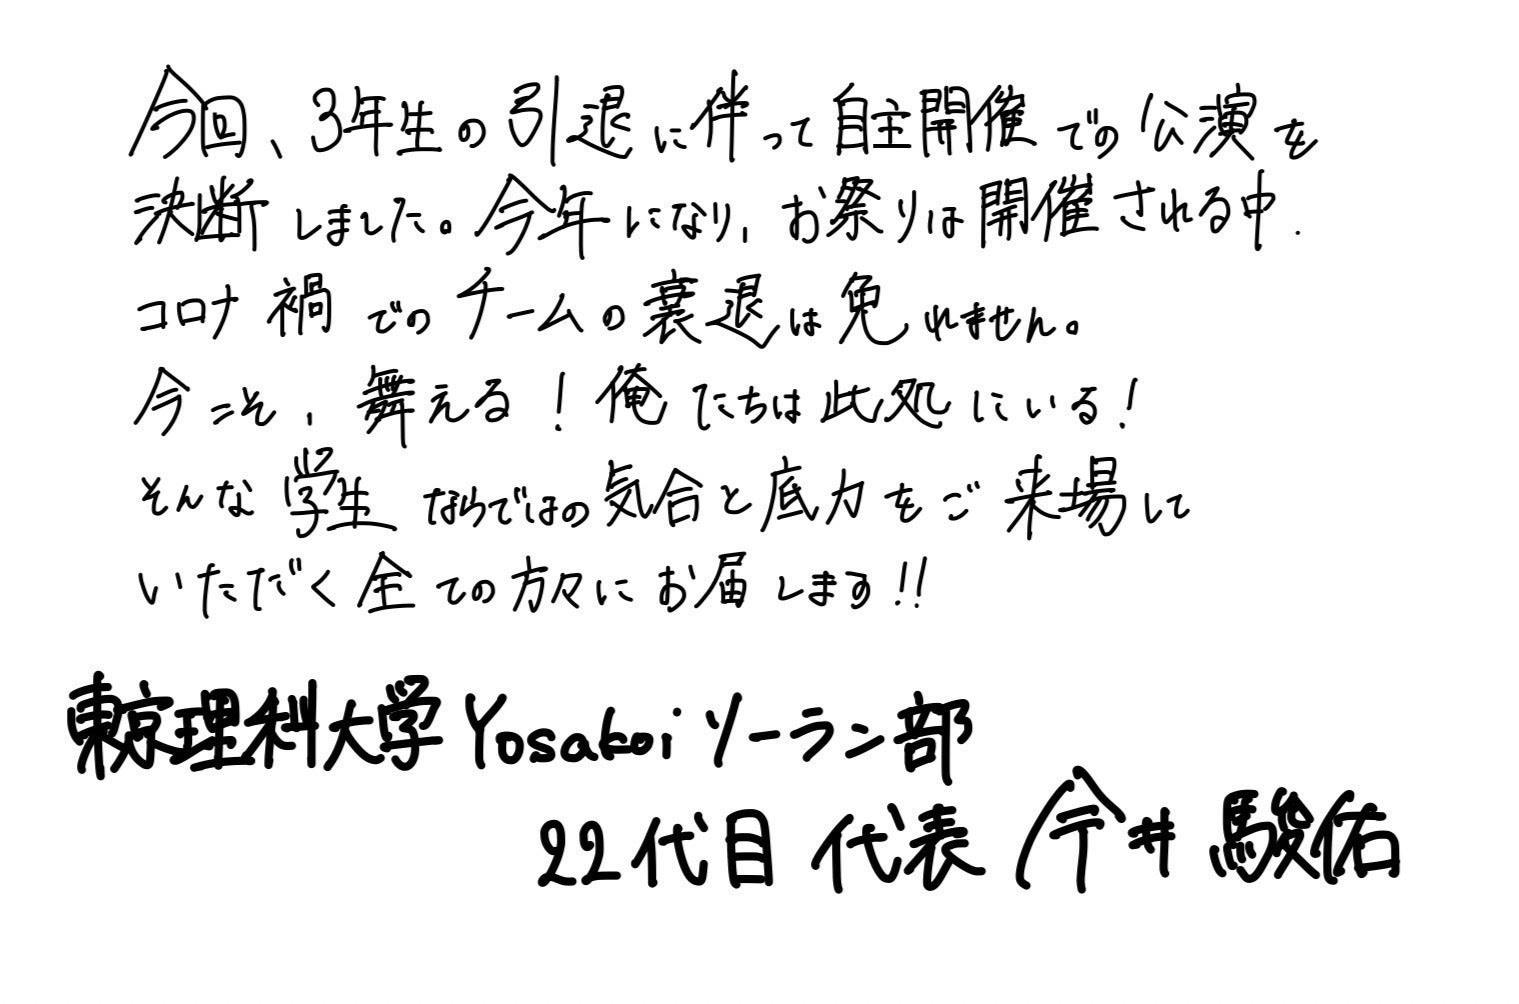 今回、3年生の引退に伴って自主開催での公演を
決断しました。今年になり、お祭りは開催される中、
コロナ禍でのチームの衰退は免れません。
今こそ、舞える！俺たちは此処にいる！
そんな学生ならではの気合と底力をご来場して
いただく全ての方々にお届します!!
東京理科大学Yosakoiソーラン部
22代目 代表 今井 駿佑